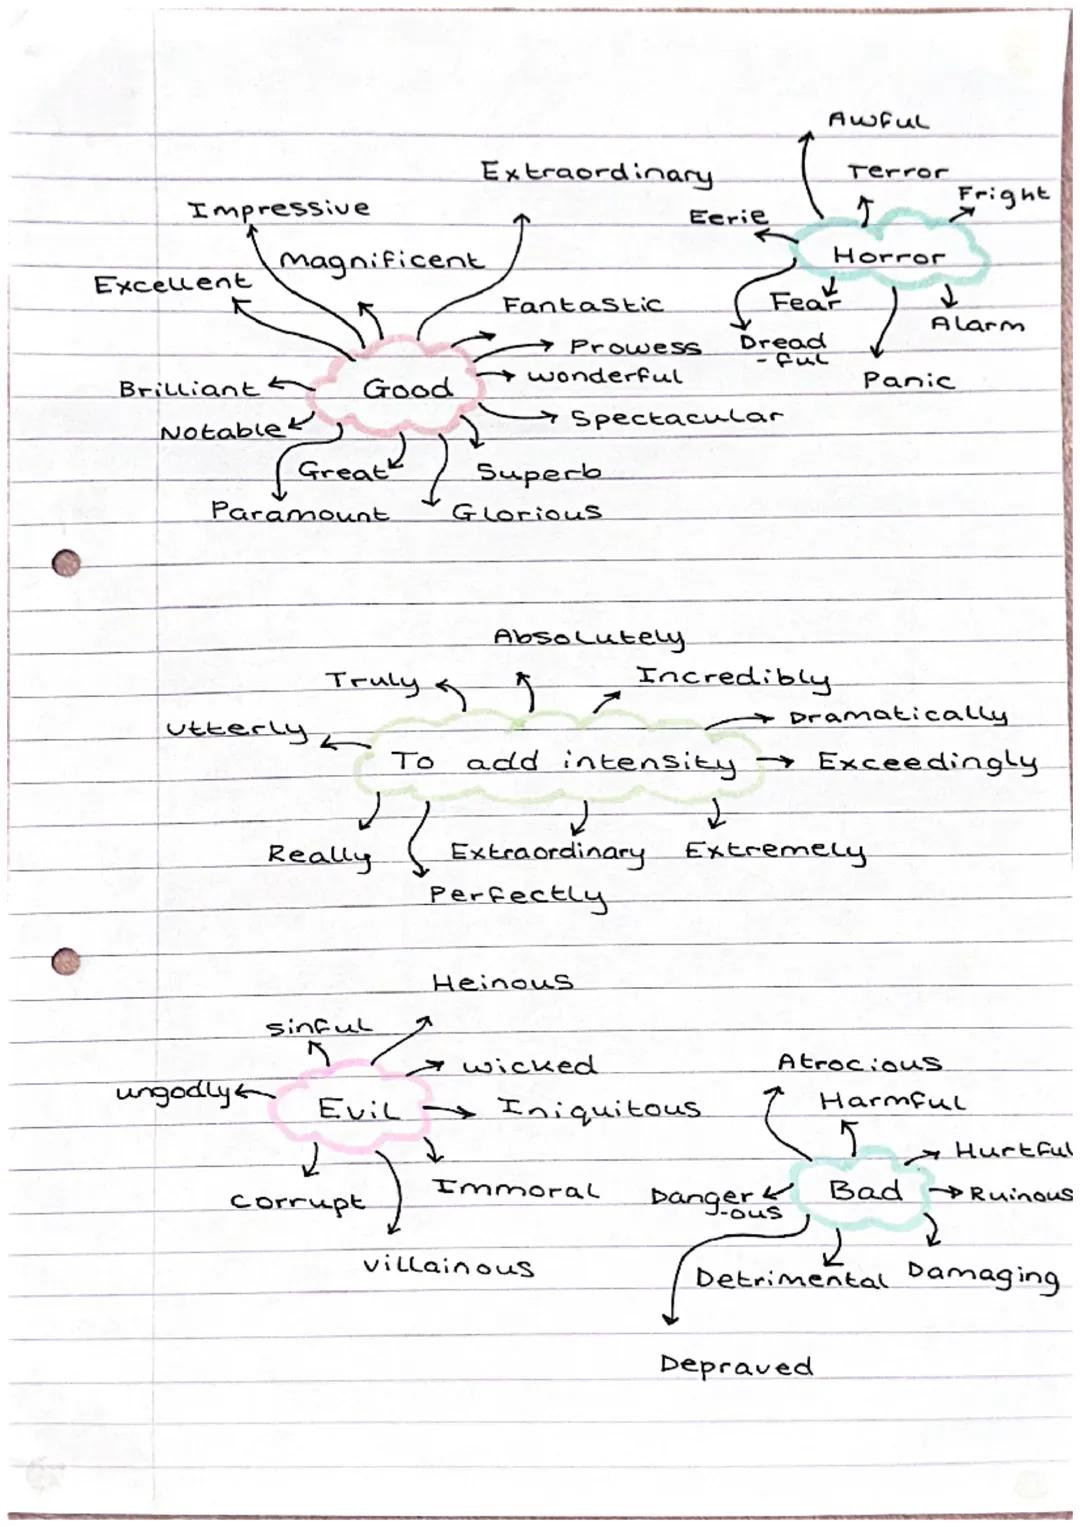 Awful
Extraordinary
Terror
Fright
Impressive
Eerie
Magnificent
Horror
Excellent
Fantastic
Fear
Alarm
Prowess
Dread
-ful
Brilliant
Good
wonderful
Panic
Notable
Spectacular
Great
Superb
Paramount
Glorious
Absolutely
Truly
Incredibly
utterly
Dramatically
To add intensity
Exceedingly
Really
Extraordinary
Extremely
Perfectly
Heinous
sinful
wicked
Atrocious
ungodly
Evil
Iniquitous
Harmful
Hurtful
corrupt
Immoral
Danger
-ous
Bad
Ruinous
villainous
Detrimental
Damaging
Depraved